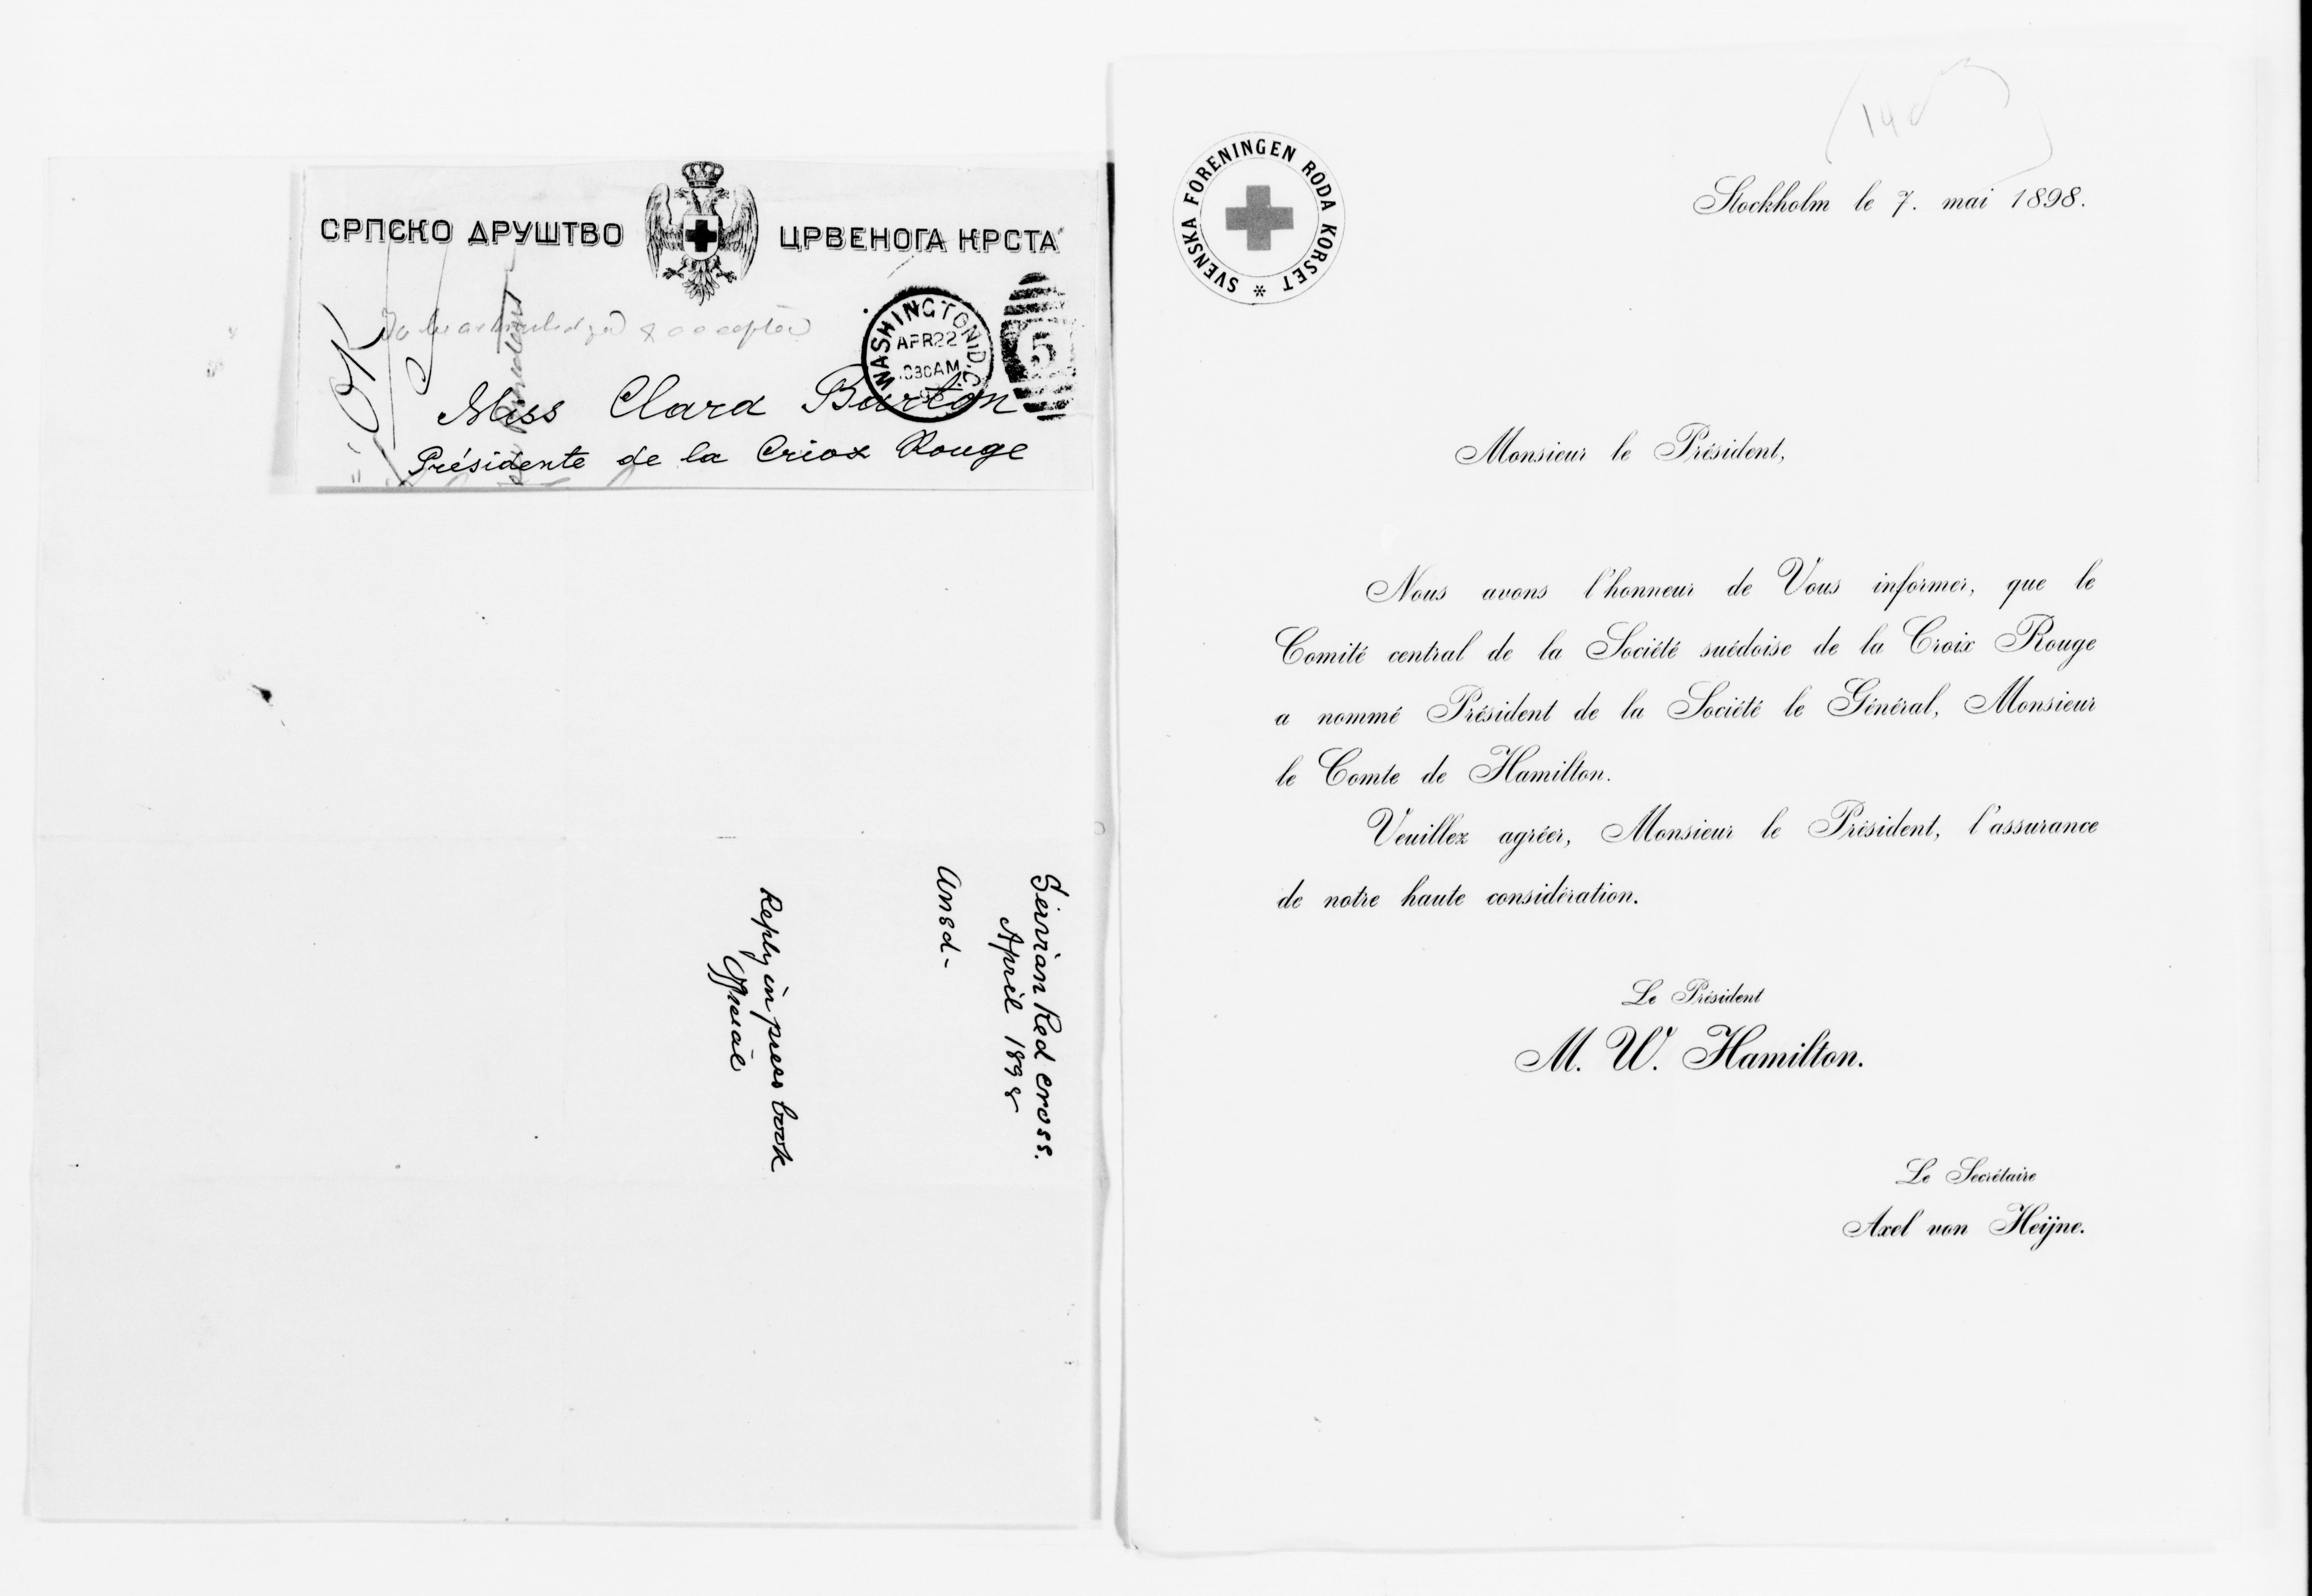 СРПСКО ДРУШТВО ЦРВЕНОГА КРСТА
To be acknowledged & accepted
OK
WASHINGTON, D.C.
APR 22
5
Miss Clara Barton
Présidente de la Criox Rouge
Servian Red cross.
April 1898
Ansd-
Reply in press book
Official
SVENSKA FÖRENINGEN RÖDA KORSET *
Stockholm le 7. mai 1898.
Monsieur le Président,
Nous avons l'honneur de Vous informer, que le
Comité central de la Société suédoise de la Croix Rouge
a nommé Président de la Société le Général, Monsieur
le Comte de Hamilton.
Veuillez agréer, Monsieur le Président, l'assurance
de notre haute considération.
Le Président
M. W. Hamilton.
Le Secrétaire
Axel von Heijne.